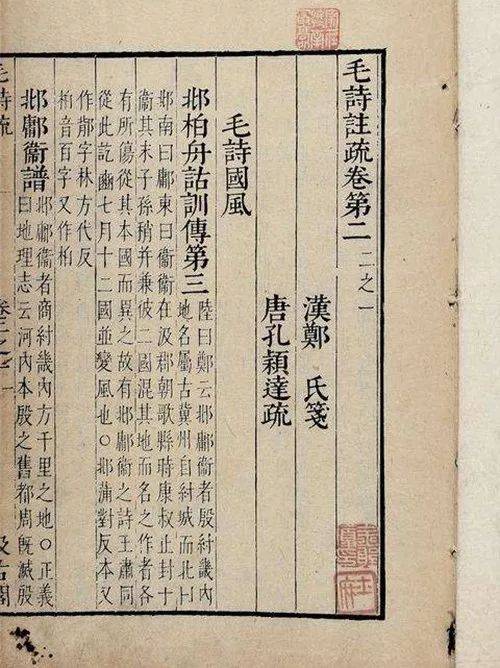 毛詩註疏卷第二 二之一
漢鄭 氏箋
唐孔穎達疏
毛詩國風
邶柏舟詁訓傳第三 陸曰鄭云邶鄘衞者殷紂畿內
地名屬古冀州自紂城而北曰
邶南曰鄘東曰衞衞在汲郡朝歌縣時康叔正封于
衞其末子孫稍并兼彼二國混其地而名之作者各
有所傷從其本國而異之故有邶鄘衞之詩王肅同
從此訖豳七月十二國並變風也○邶蒲對反本又
作鄁字林方代反
柏音百字又作栢
邶鄘衞譜 邶鄘衞者商紂畿內方千里之地○正義
曰地理志云河內本殷之舊都周旣滅殷
毛詩疏 汲古閣